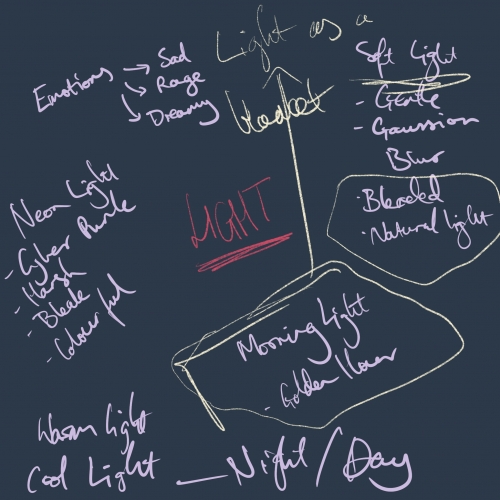 Light as a
blanket
Emotions → Sad
→ Rage
→ Dreamy
Soft Light
- Gentle
- Gaussian
Blur
· Bleeded
· Natural light
Neon Light
- Cyber Punk
- Harsh
- Bleak
- Colourful
LIGHT
Morning Light
- Golden Hour
Warm light
Cool Light — Night / Day